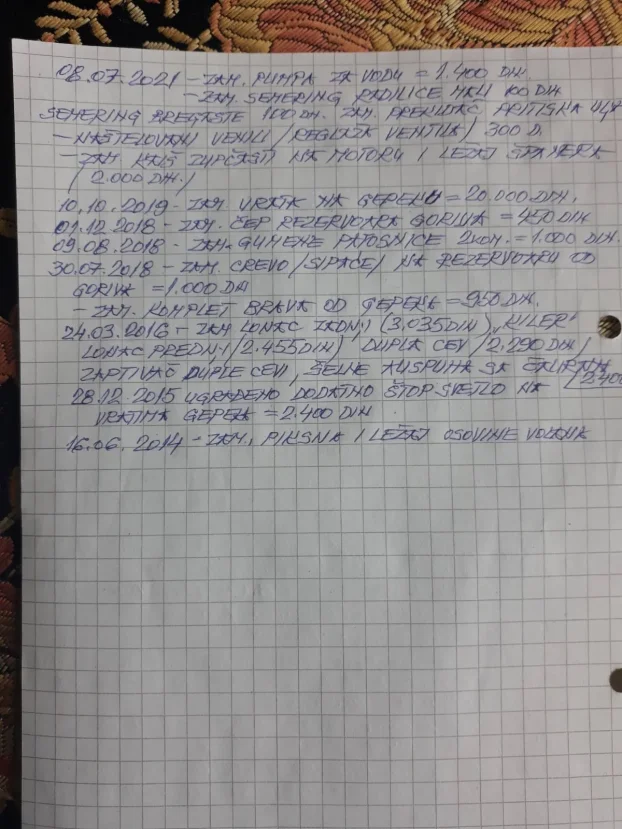 08.07.2021 - ZAM. PUMPA ZA VODU = 1.400 DIN.
- ZAM. SEMERING RADILICE MALI 100 DIN
SEMERING BREGASTE 100 DIN. ZAM. PREKIDAČ PRITISKA ULJA
- NAŠTELOVANI VENTILI /REGLAŽA VENTILA/ 300 D.
- ZAM. KAIŠ ZUPČASTI NA MOTORU I LEŽAJ ŠPANERA
/2.000 DIN./
10.10.2019 - ZAM. VRATA NA GEPEKU = 20.000 DIN.
01.12.2018 - ZAM. ČEP REZERVOARA GORIVA = 450 DIN
09.08.2018 - ZAM. GUMENE PATOSNICE 2 KOM. = 1.000 DIN.
30.07.2018 - ZAM. CREVO /SIPAČE/ NA REZERVOARU OD
GORIVA = 1.000 DIN
- ZAM. KOMPLET BRAVA OD GEPEKA = 950 DIN.
24.03.2016 - ZAM LONAC ZADNJI (3.035 DIN) „KILER"
LONAC PREDNJI /2.455 DIN/ DUPLA CEV /2.290 DIN/
ZAPTIVAČ DUPLE CEVI, ŠELNE AUSPUHA SA
28.12.2015 UGRAĐENO DODATNO ŠTOP SVETLO NA
VRATIMA GEPEKA = 2.400 DIN
16.06.2014 - ZAM. PIKSNA I LEŽAJ OSOVINE VOLANA